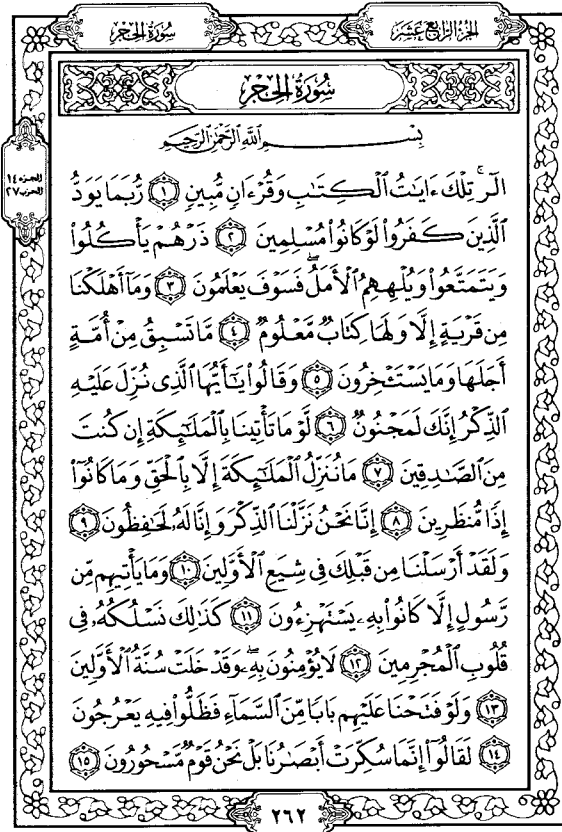 سُورَةُ الحِجْرِ
الجُزْءُ الرَّابِعَ عَشَرَ
سُورَةُ الحِجْرِ
بِسْمِ اللَّهِ الرَّحْمَٰنِ الرَّحِيمِ
للجزء ١٤
للحزب ٢٧
الٓرۚ تِلْكَ ءَايَٰتُ ٱلْكِتَٰبِ وَقُرْءَانٍ مُّبِينٍ ١ رُّبَمَا يَوَدُّ
ٱلَّذِينَ كَفَرُوا۟ لَوْ كَانُوا۟ مُسْلِمِينَ ٢ ذَرْهُمْ يَأْكُلُوا۟
وَيَتَمَتَّعُوا۟ وَيُلْهِهِمُ ٱلْأَمَلُۖ فَسَوْفَ يَعْلَمُونَ ٣ وَمَآ أَهْلَكْنَا
مِن قَرْيَةٍ إِلَّا وَلَهَا كِتَابٌ مَّعْلُومٌ ٤ مَّا تَسْبِقُ مِنْ أُمَّةٍ
أَجَلَهَا وَمَا يَسْتَـْٔخِرُونَ ٥ وَقَالُوا۟ يَٰٓأَيُّهَا ٱلَّذِى نُزِّلَ عَلَيْهِ
ٱلذِّكْرُ إِنَّكَ لَمَجْنُونٌ ٦ لَّوْ مَا تَأْتِينَا بِٱلْمَلَٰٓئِكَةِ إِن كُنتَ
مِنَ ٱلصَّٰدِقِينَ ٧ مَا نُنَزِّلُ ٱلْمَلَٰٓئِكَةَ إِلَّا بِٱلْحَقِّ وَمَا كَانُوٓا۟
إِذًا مُّنظَرِينَ ٨ إِنَّا نَحْنُ نَزَّلْنَا ٱلذِّكْرَ وَإِنَّا لَهُۥ لَحَٰفِظُونَ ٩
وَلَقَدْ أَرْسَلْنَا مِن قَبْلِكَ فِى شِيَعِ ٱلْأَوَّلِينَ ١٠ وَمَا يَأْتِيهِم مِّن
رَّسُولٍ إِلَّا كَانُوا۟ بِهِۦ يَسْتَهْزِءُونَ ١١ كَذَٰلِكَ نَسْلُكُهُۥ فِى
قُلُوبِ ٱلْمُجْرِمِينَ ١٢ لَا يُؤْمِنُونَ بِهِۦۖ وَقَدْ خَلَتْ سُنَّةُ ٱلْأَوَّلِينَ
١٣ وَلَوْ فَتَحْنَا عَلَيْهِم بَابًا مِّنَ ٱلسَّمَآءِ فَظَلُّوا۟ فِيهِ يَعْرُجُونَ
١٤ لَقَالُوٓا۟ إِنَّمَا سُكِّرَتْ أَبْصَٰرُنَا بَلْ نَحْنُ قَوْمٌ مَّسْحُورُونَ ١٥
٢٦٢